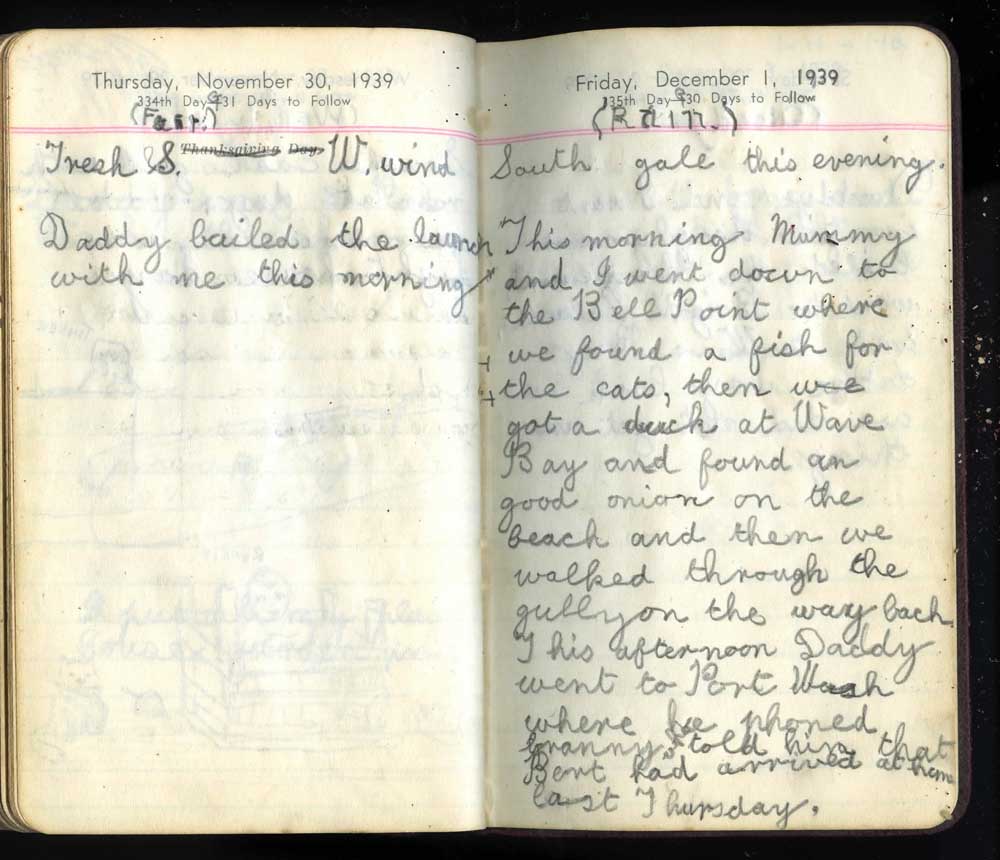 Thursday, November 30, 1939
334th Day 31 Days to Follow
(Fair.)
Fresh S. Thanksgiving Day W. wind
Daddy bailed the launch
with me this morning
Friday, December 1, 1939
335th Day 30 Days to Follow
(Rain.)
South gale this evening.
This morning Mummy
and I went down to
the Bell Point where
we found a fish for
the cats, then we
got a duck at Wave
Bay and found an
good onion on the
beach and then we
walked through the
gully on the way back.
This afternoon Daddy
went to Port Wash
where he phoned
Granny, told him that
Bert had arrived at home
last Thursday.